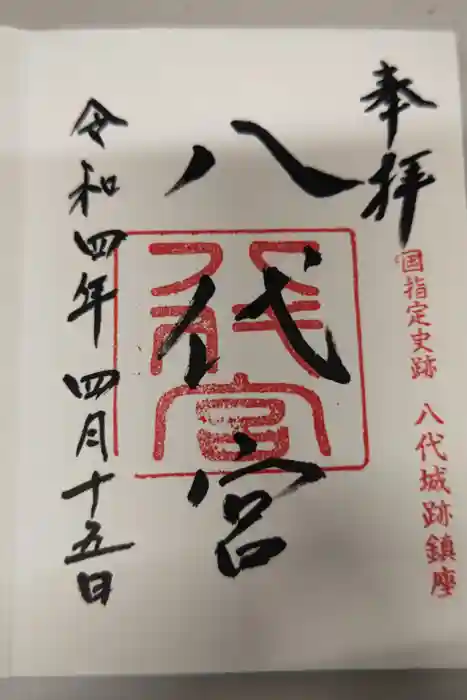 奉拝
国指定史跡 八代城跡鎮座
八代宮
令和四年四月十五日